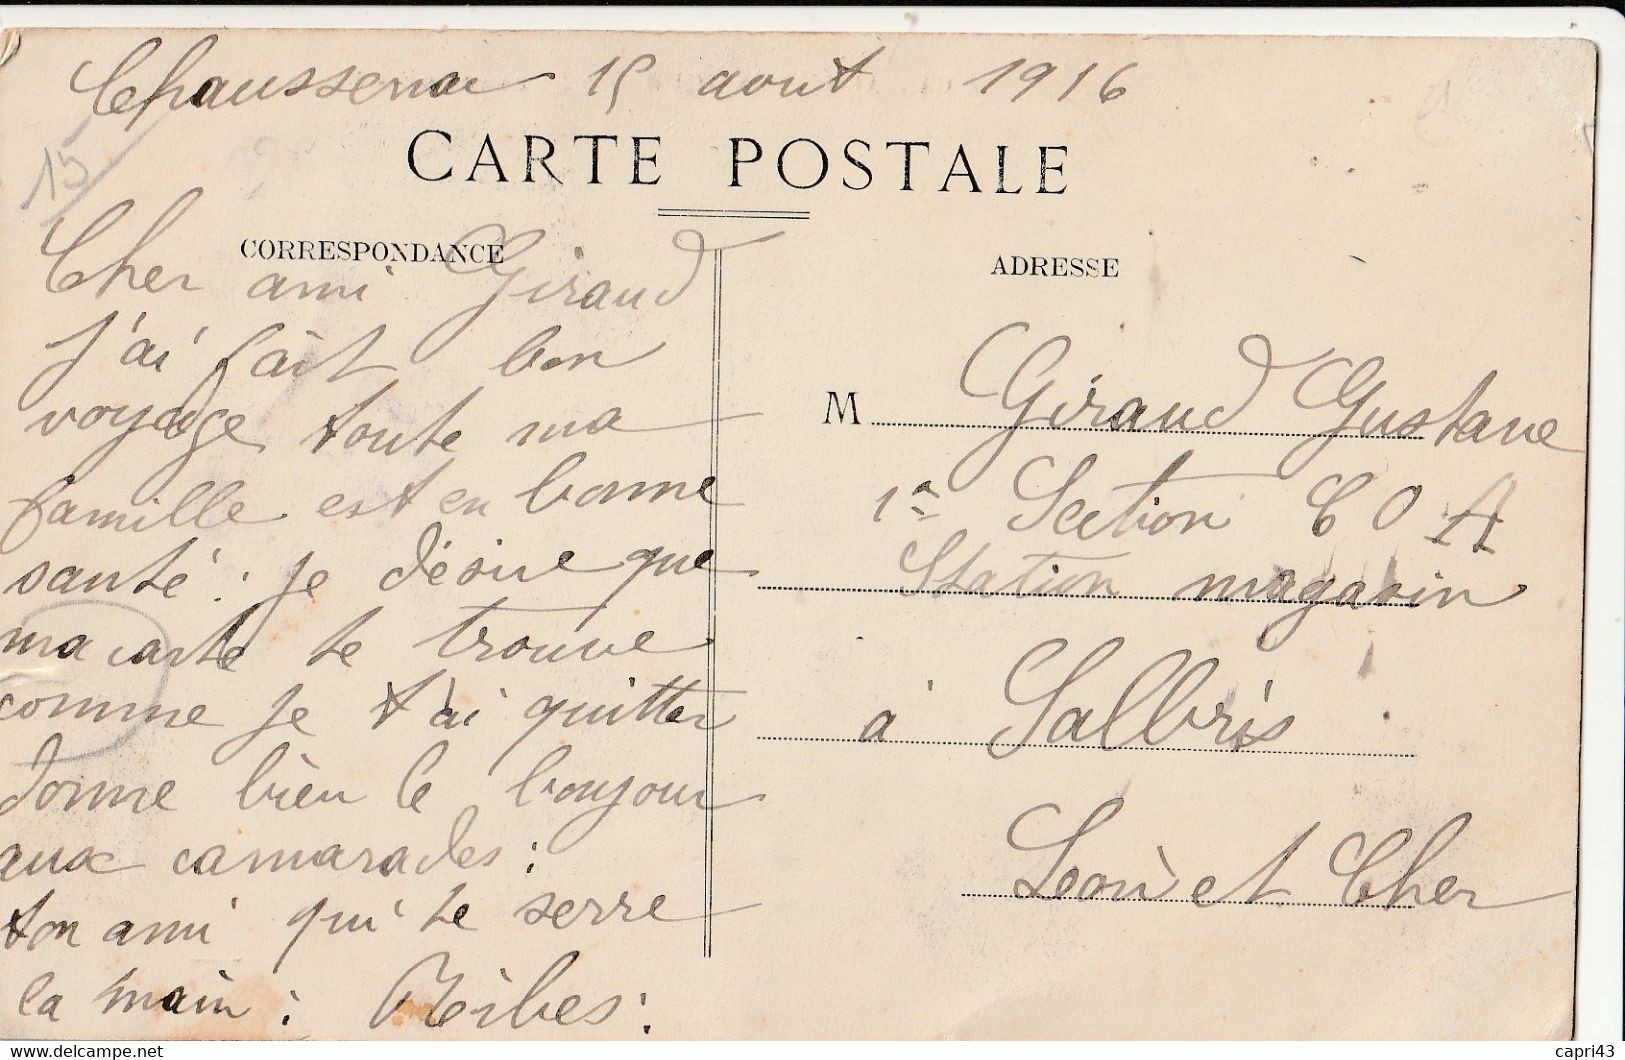 Chaussenac 15 aout 1916
CARTE POSTALE
15
CORRESPONDANCE
Cher ami Giraud
J'ai fait bon
voyage toute ma
famille est en bonne
santé : je désire que
ma carte te trouve
comme je t'ai quitter
donne bien le bonjour
aux camarades :
ton ami qui te serre
la main : Ribes :
ADRESSE
M Giraud Gustave
1re Section C O A
Station magasin
à Salbris
Loir et Cher
www.delcampe.net
capri43